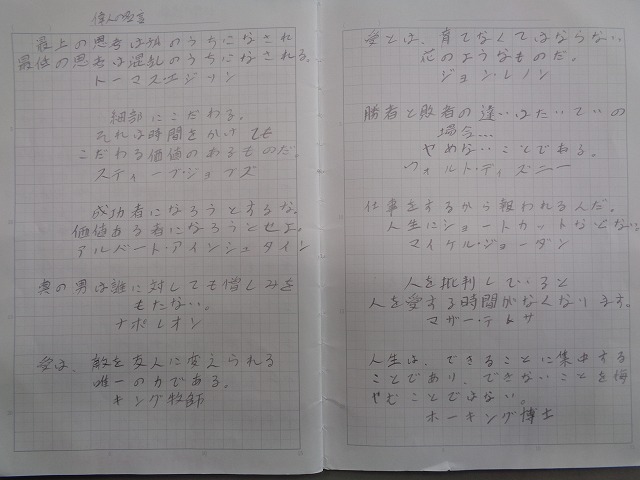 偉人の名言
最上の思考は孤独のうちになされ
最低の思考は混乱のうちになされる。
トーマス・エジソン
細部にこだわる。
それは時間をかけても
こだわる価値のあるものだ。
スティーブ・ジョブズ
成功者になろうとするな。
価値ある者になろうとせよ。
アルバート・アインシュタイン
真の男は誰に対しても憎しみを
もたない。
ナポレオン
愛は、敵を友人に変えられる
唯一の力である。
キング牧師
愛とは、育てなくてはならない
花のようなものだ。
ジョン・レノン
勝者と敗者の違いはたいていの
場合...
やめないことである。
ウォルト・ディズニー
仕事をするから報われる人だ。
人生にショートカットなどない
マイケル・ジョーダン
人を批判していると
人を愛する時間がなくなります。
マザー・テレサ
人生は、できることに集中する
ことであり、できないことを悔
やむことではない。
ホーキング博士